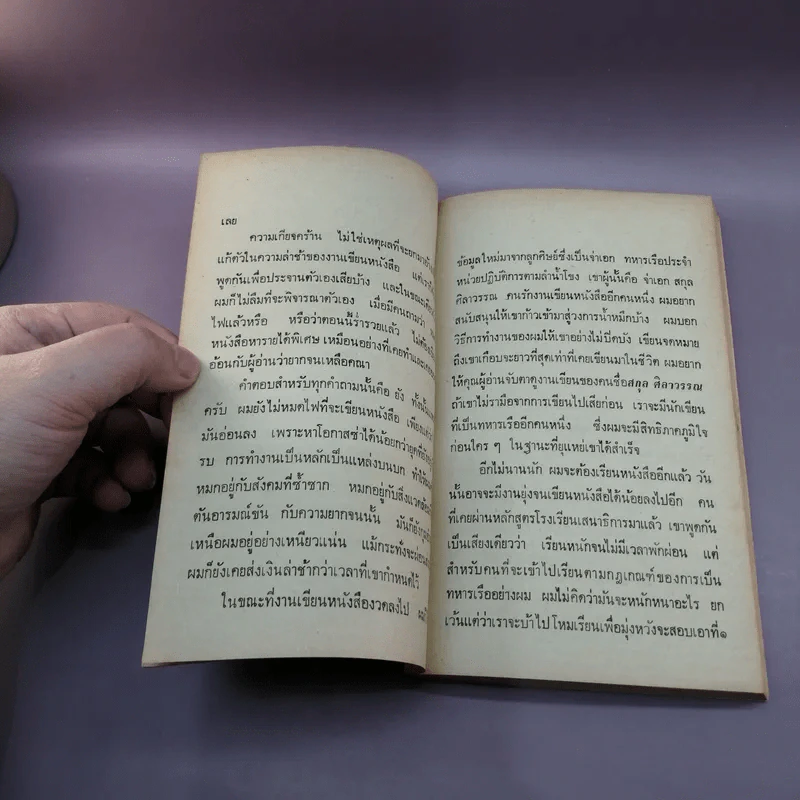 เลย
ความเกียจคร้าน ไม่ใช่เหตุผลที่จะยกมาอ้าง
แก้ตัวในความล่าช้าของงานเขียนหนังสือ
พูดกันเพื่อประจานตัวเองเสียบ้าง และในขณะ
ผมก็ไม่ลืมที่จะพิจารณาตัวเอง เมื่อมีคนถามว่า
ไฟแล้วหรือ หรือว่าตอนนี้ร่ำรวยแล้ว
หนังสือหารายได้พิเศษ เหมือนอย่างที่เคยทำและเคย
อ้อนกับผู้อ่านว่ายากจนเหลือคณา
คำตอบสำหรับทุกคำถามนั้นคือ ยัง
ครับ ผมยังไม่หมดไฟที่จะเขียนหนังสือ
มันอ่อนลง เพราะหาโอกาสซ่าได้น้อยกว่ายุค
รบ การทำงานเป็นหลักเป็นแหล่งบนบก
หมกอยู่กับสังคมที่ซ้ำซาก หมกอยู่กับสิ่งแวด
ตันอารมณ์ขัน กับความยากจนนั้น มันก็ยัง
เหนือผมอยู่อย่างเหนียวแน่น แม้กระทั่งจะผ่อน
ผมก็ยังเคยส่งเงินล่าช้ากว่าเวลาที่เขากำหนดไว้
ในขณะที่งานเขียนหนังสืองวดลงไป
ข้อมูลใหม่มาจากลูกศิษย์ซึ่งเป็นจ่าเอก ทหารเรือประจำ
หน่วยปฏิบัติการตามลำน้ำโขง เขาผู้นั้นคือ จ่าเอก สกุล
ศิลาวรรณ คนรักงานเขียนหนังสืออีกคนหนึ่ง ผมอยาก
สนับสนุนให้เขาก้าวเข้ามาสู่วงการน้ำหมึกบ้าง ผมบอก
วิธีการทำงานของผมให้เขาอย่างไม่ปิดบัง เขียนจดหมาย
ถึงเขาเกือบจะยาวที่สุดเท่าที่เคยเขียนมาในชีวิต ผมอยาก
ให้คุณผู้อ่านจับตาดูงานเขียนของคนชื่อสกุล ศิลาวรรณ
ถ้าเขาไม่รามือจากการเขียนไปเสียก่อน เราจะมีนักเขียน
ที่เป็นทหารเรืออีกคนหนึ่ง ซึ่งผมจะมีสิทธิภาคภูมิใจ
ก่อนใคร ๆ ในฐานะที่ยุแหย่เขาได้สำเร็จ
อีกไม่นานนัก ผมจะต้องเรียนหนังสืออีกแล้ว วัน
นั้นอาจจะมีงานยุ่งจนเขียนหนังสือได้น้อยลงไปอีก คน
ที่เคยผ่านหลักสูตรโรงเรียนเสนาธิการมาแล้ว เขาพูดกัน
เป็นเสียงเดียวว่า เรียนหนักจนไม่มีเวลาพักผ่อน แต่
สำหรับคนที่จะเข้าไปเรียนตามกฎเกณฑ์ของการเป็น
ทหารเรืออย่างผม ผมไม่คิดว่ามันจะหนักหนาอะไร ยก
เว้นแต่ว่าเราจะบ้าไปโหมเรียนเพื่อมุ่งหวังจะสอบเอาที่๑